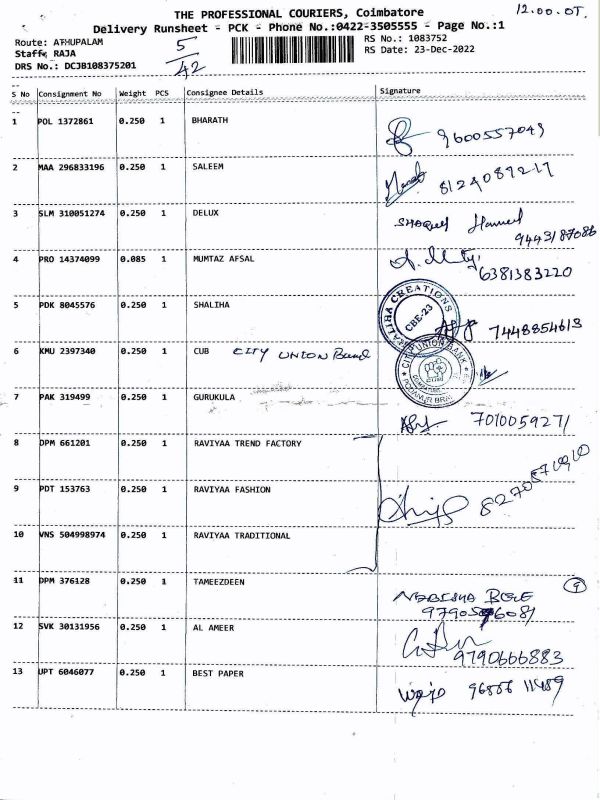 THE PROFESSIONAL COURIERS, Coimbatore
12.00.OT.
Delivery Runsheet - PCK - Phone No.:0422-3505555 - Page No.:1
Route: ATHUPALAM
5/42
RS No.: 1083752
Staff: RAJA
RS Date: 23-Dec-2022
DRS No.: DCJB108375201
S No Consignment No Weight PCS Consignee Details Signature
1 POL 1372861 0.250 1 BHARATH
9600557049
2 MAA 296833196 0.250 1 SALEEM
8124089217
3 SLM 310051274 0.250 1 DELUX
9443187086
4 PRO 14374099 0.085 1 MUMTAZ AFSAL
6381383220
5 PDK 8045576 0.250 1 SHALIHA
CREATIONS
CBE-23
7448854613
6 KMU 2397340 0.250 1 CUB CITY UNION Bank
CITY UNION BANK
7 PAK 319499 0.250 1 GURUKULA
7010059271
8 DPM 661201 0.250 1 RAVIYAA TREND FACTORY
9 PDT 153763 0.250 1 RAVIYAA FASHION
10 VNS 504998974 0.250 1 RAVIYAA TRADITIONAL
11 DPM 376128 0.250 1 TAMEEZDEEN
9
12 SVK 30131956 0.250 1 AL AMEER
9790666883
13 UPT 6046077 0.250 1 BEST PAPER